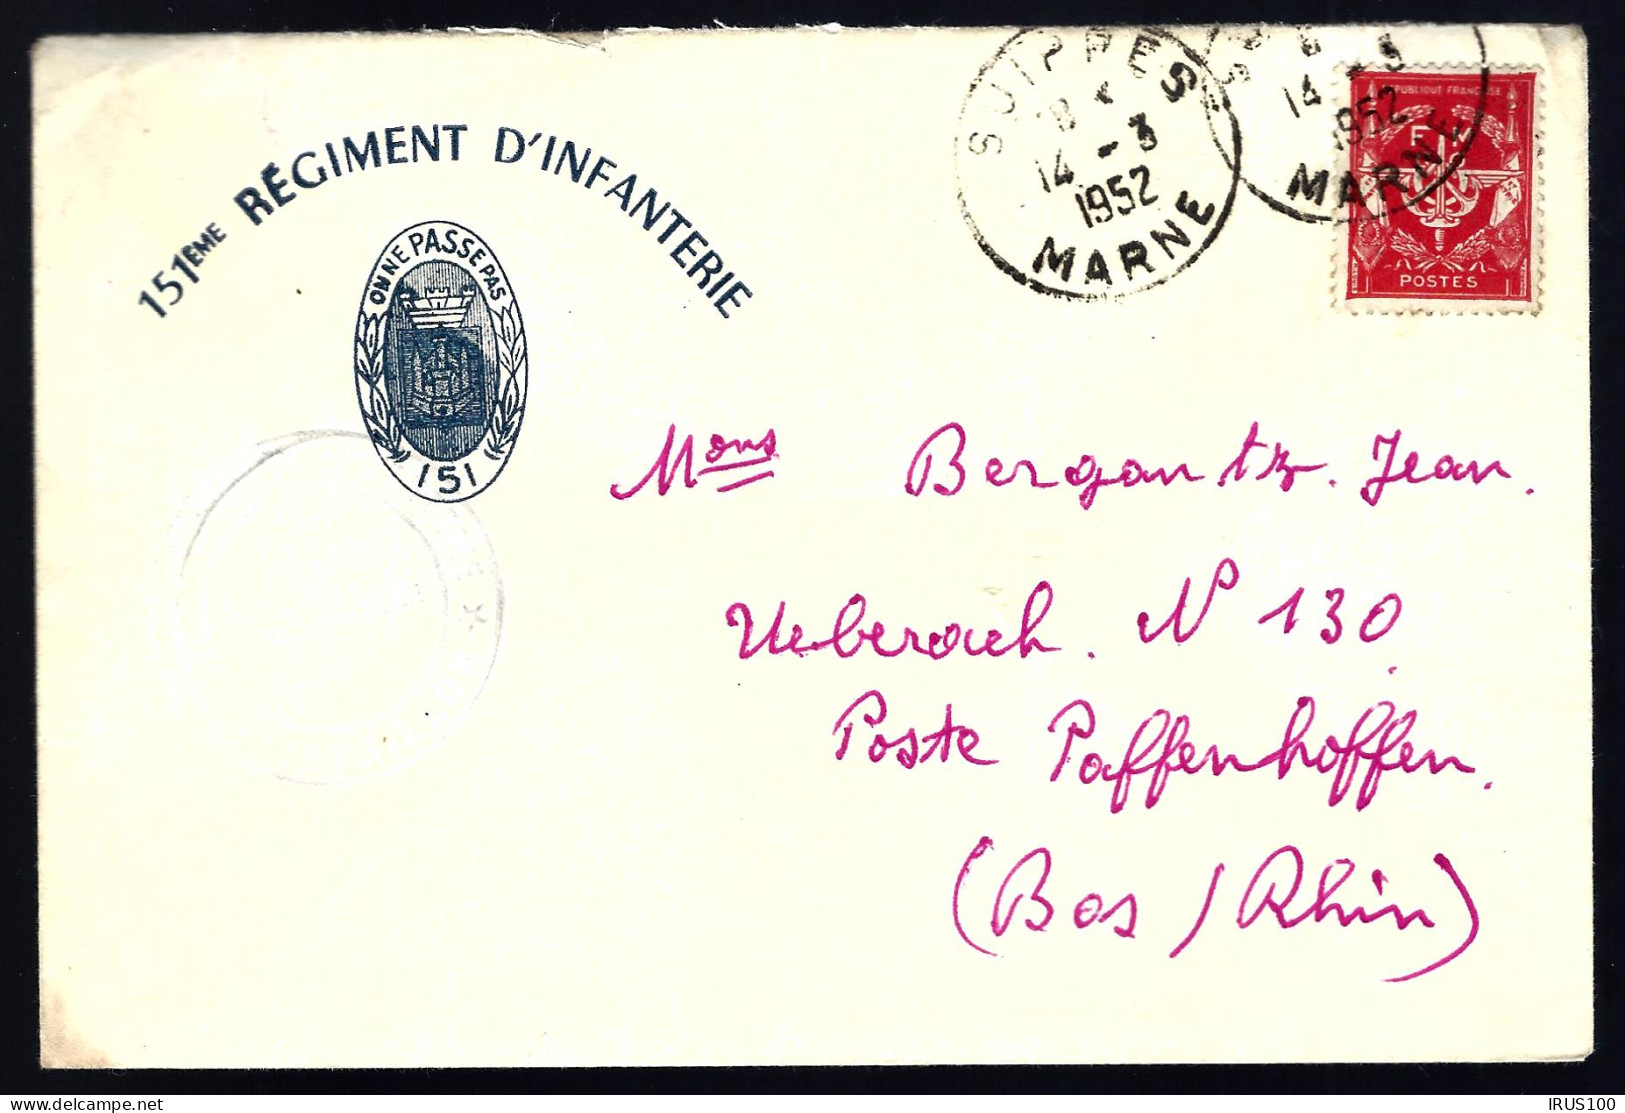 151ÈME RÉGIMENT D'INFANTERIE
ON NE PASSE PAS
151
SUIPPES
14 - 3
1952
MARNE
14 - 3
1952
MARNE
RÉPUBLIQUE FRANÇAISE
F M
POSTES
Mons Bergantz. Jean.
Ueberach. N 130
Poste Paffenhoffen.
(Bas / Rhin)
Delcampe.net
IRUS100